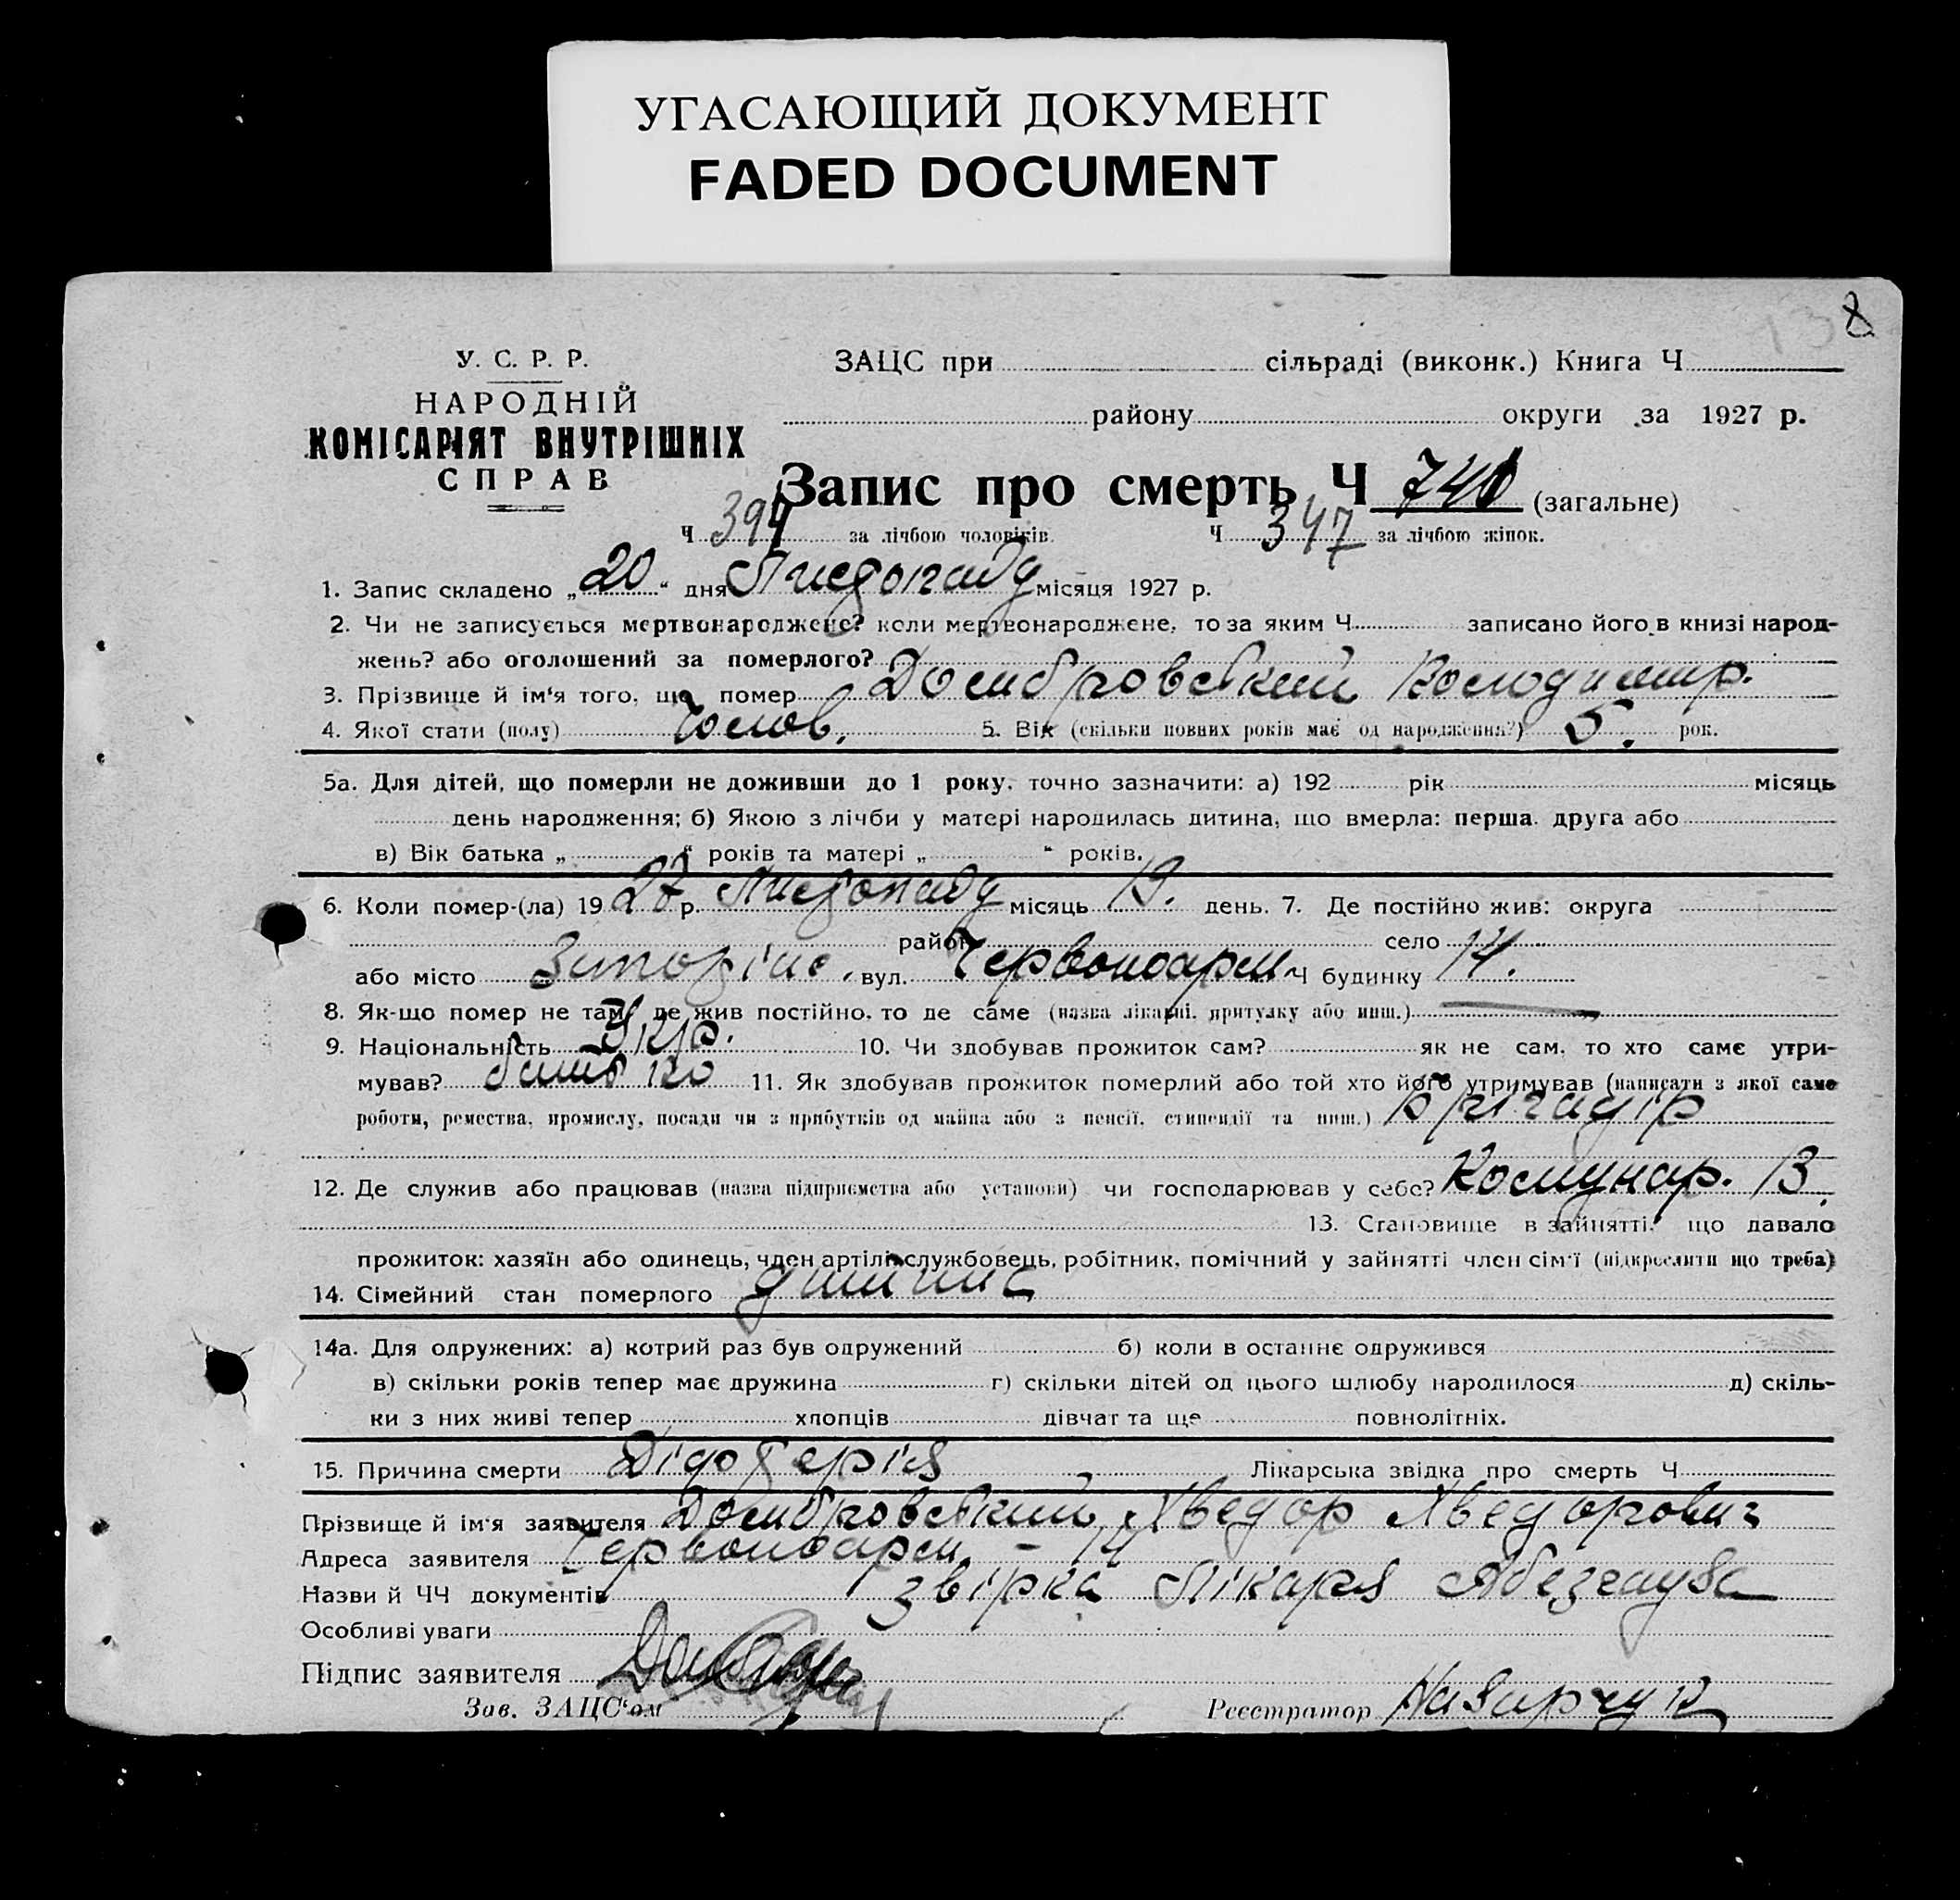 УГАСАЮЩИЙ ДОКУМЕНТ
FADED DOCUMENT
8
У. С. Р. Р.
НАРОДНІЙ
КОМІСАРІЯТ ВНУТРІШНІХ
СПРАВ
ЗАЦС при сільраді (виконк.) Книга Ч
району округи за 1927 р.
Запис про смерть Ч 740 (загальне)
Ч 394 за лічбою чоловіків. Ч 347 за лічбою жінок.
1. Запис складено „20" дня Листопаду місяця 1927 р.
2. Чи не записується мертвонароджене? коли мертвонароджене, то за яким Ч записано його в книзі народ-
жень? або оголошений за померлого?
3. Прізвище й ім'я того, що помер Домбровський Володимир.
4. Якої стати (полу) Чолов. 5. Вік (скільки повних років має од народження?) 5. рок.
5а. Для дітей, що померли не доживши до 1 року, точно зазначити: а) 192 рік місяць
день народження; б) Якою з лічби у матері народилась дитина, що вмерла: перша, друга або
в) Вік батька „ " років та матері „ " років.
6. Коли помер-(ла) 1927 р. Листопаду місяць 19. день. 7. Де постійно жив: округа
район село
або місто вул. Червоноарм Ч будинку 14.
8. Як-що помер не там, де жив постійно, то де саме (назва лікарні, притулку або инш.)
9. Національність Укр. 10. Чи здобував прожиток сам? як не сам, то хто саме утри-
мував? батько 11. Як здобував прожиток померлий або той хто його утримував (написати з якої саме
роботи, ремества, промислу, посади чи з прибутків од майна або з пенсії, стипендії та инш.) бригадір
12. Де служив або працював (назва підприємства або установи) чи господарював у себе? Комунар. В.
13. Становище в зайнятті, що давало
прожиток: хазяїн або одинець, член артілі, службовець, робітник, помічний у зайнятті член сім'ї (підкреслити що треба)
14. Сімейний стан померлого
14а. Для одружених: а) котрий раз був одружений б) коли в останнє одружився
в) скільки років тепер має дружина г) скільки дітей од цього шлюбу народилося д) скіль-
ки з них живі тепер хлопців дівчат та ще повнолітніх.
15. Причина смерти Діфтерія Лікарська звідка про смерть Ч
Прізвище й ім'я заявителя Домбровський Хведор Хведорович
Адреса заявителя Червоноарм – 14
Назви й ЧЧ документів звірка Лікаря
Особливі уваги
Підпис заявителя
Зав. ЗАЦС'ом Реєстратор Назарчук